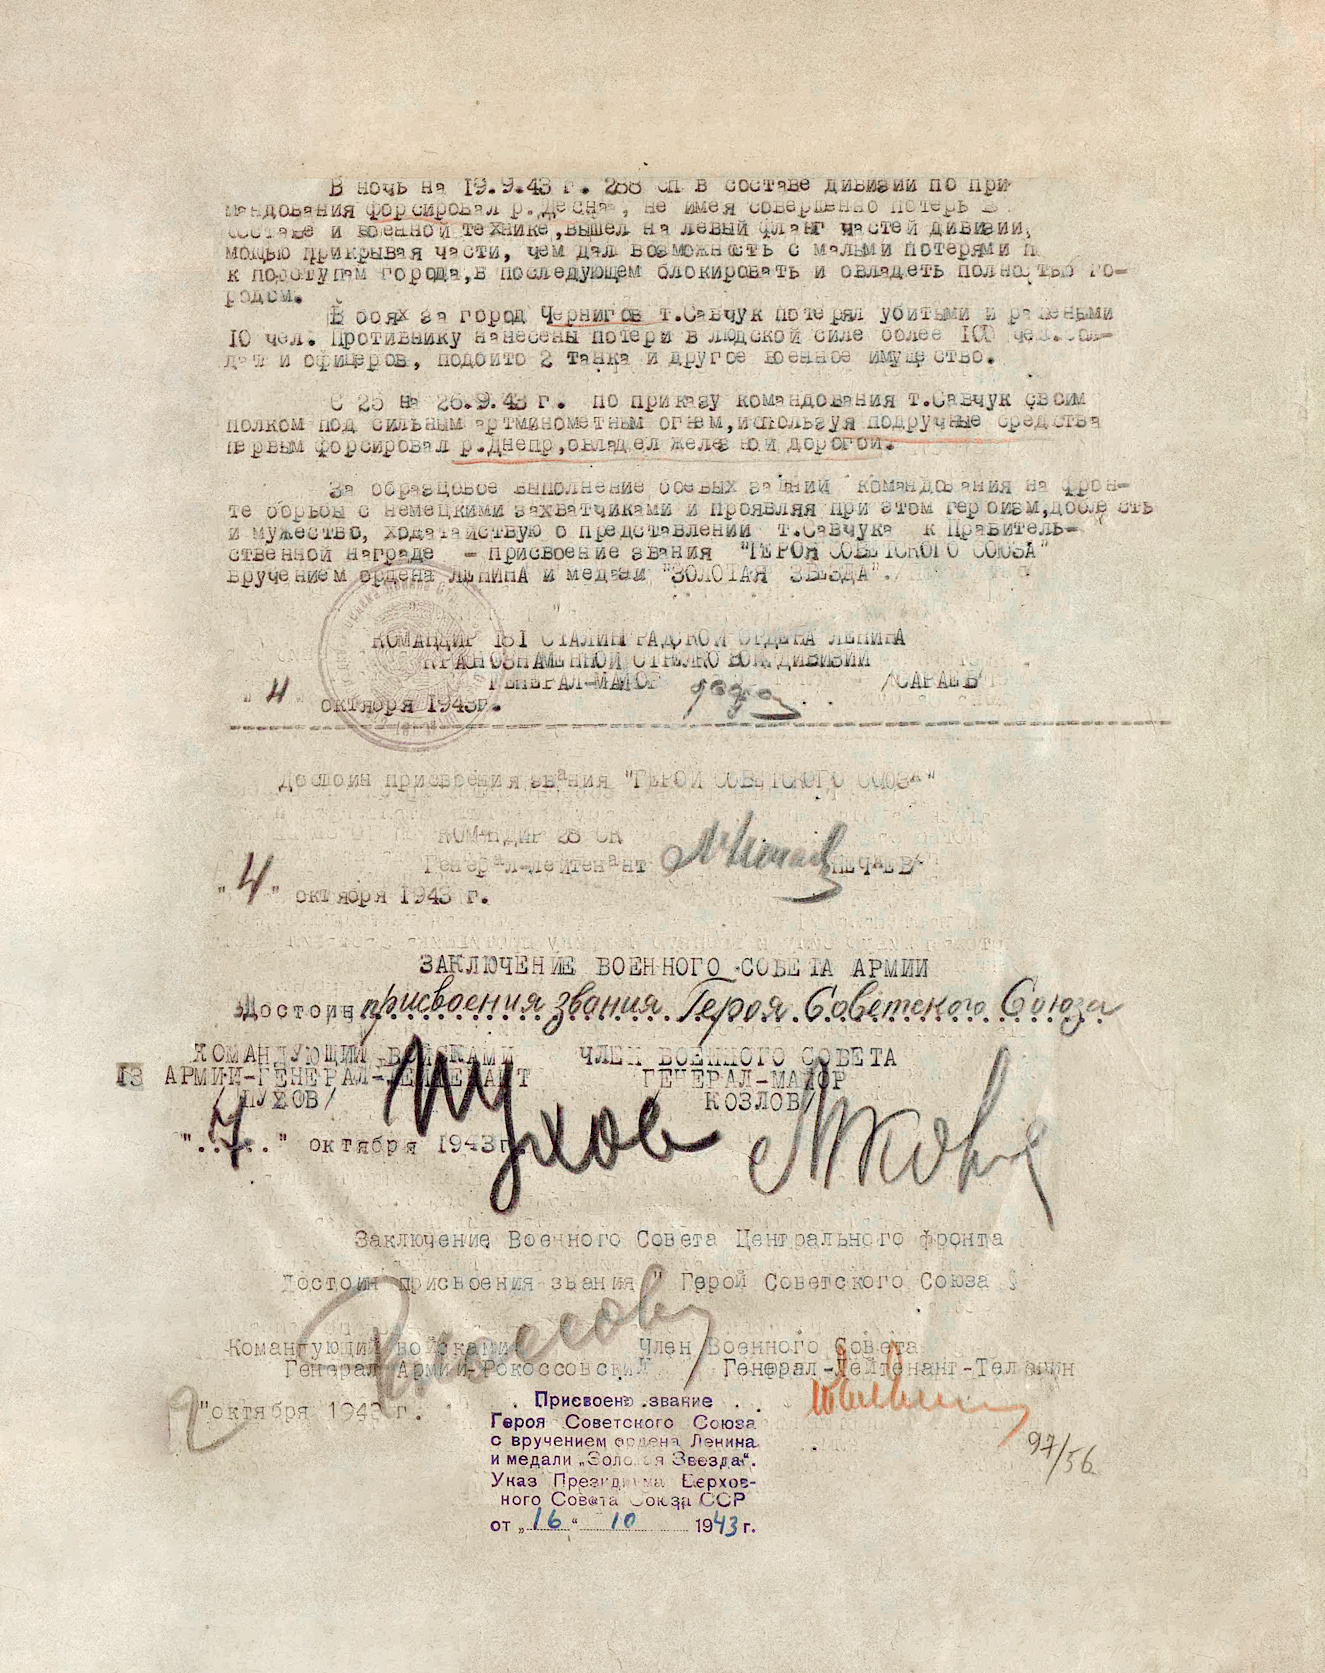 В ночь на 19.9.43 г. 288 сп в составе дивизии по при
мандования форсировал р.Десна, не имея совершенно потерь в
составе и военной технике,вышел на левый фланг частей дивизии,
мощью прикрывая части, чем дал возможность с малыми потерями п
к подступам города,в последующем блокировать и овладеть полностью го-
родом.
В боях за город Чернигов т.Савчук потерял убитыми и ранеными
10 чел. Противнику нанесены потери в людской силе более 100 чел. сол-
дат и офицеров, подбито 2 танка и другое военное имущество.
С 25 на 26.9.43 г. по приказу командования т.Савчук своим
полком под сильным артминометным огнем,используя подручные средства
первым форсировал р.Днепр,овладел железной дорогой.
За образцовое выполнение боевых заданий командования на фрон-
те борьбы с немецкими захватчиками и проявляя при этом героизм,доблесть
и мужество, ходатайствую о представлении т.Савчука к Правитель-
ственной награде - присвоение звания "ГЕРОЯ СОВЕТСКОГО СОЮЗА"
вручением ордена ЛЕНИНА и медали "ЗОЛОТАЯ ЗВЕЗДА".
КОМАНДИР 181 СТАЛИНГРАДСКОЙ ОРДЕНА ЛЕНИНА
КРАСНОЗНАМЕННОЙ СТРЕЛКОВОЙ ДИВИЗИИ
ГЕНЕРАЛ-МАЙОР /САРАЕВ
"4" октября 1943г.
Достоин присвоения звания "ГЕРОЙ СОВЕТСКОГО СОЮЗА"
КОМАНДИР 28 СК
Генерал-лейтенант НЕЧАЕВ
"4" октября 1943 г.
ЗАКЛЮЧЕНИЕ ВОЕННОГО СОВЕТА АРМИИ
Достоин присвоения звания Героя Советского Союза
КОМАНДУЮЩИЙ ВОЙСКАМИ ЧЛЕН ВОЕННОГО СОВЕТА
13 АРМИИ-ГЕНЕРАЛ-ЛЕЙТЕНАНТ ГЕНЕРАЛ-МАЙОР
/ПУХОВ/ КОЗЛОВ/
Пухов
"..7.." октября 1943г
Заключение Военного Совета Центрального фронта
Достоин присвоения звания " Герой Советского Союза "
Командующий войсками Член Военного Совета
Генерал Армии-Рокоссовский Генерал-Лейтенант-Телегин
"октября 1943 г.
Присвоено звание
Героя Советского Союза
с вручением ордена Ленина
и медали „Золотая Звезда“.
Указ Президиума Верхов-
ного Совета Союза ССР
от „16“ 10 1943 г.
97/56